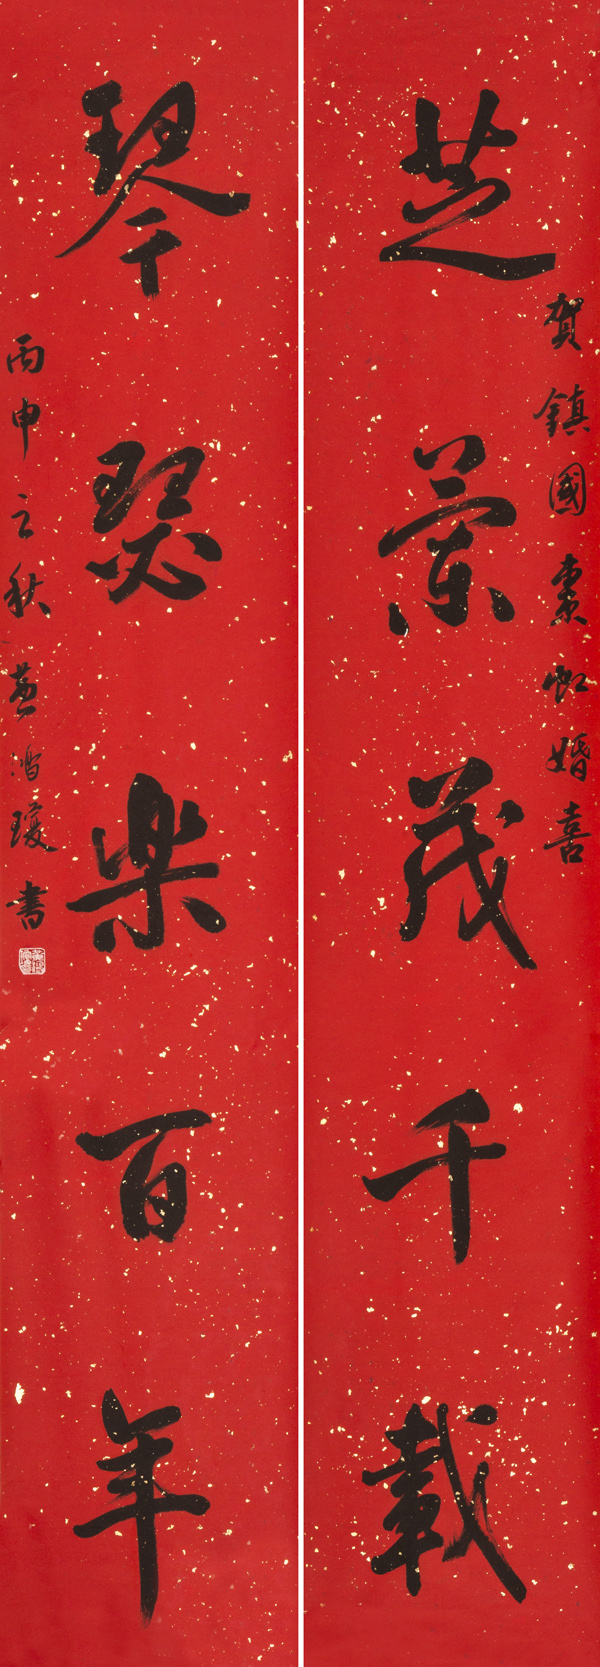 賀鎮國素虹婚喜
芝蘭茂千載
琴瑟樂百年
丙申之秋黃鴻瓊書